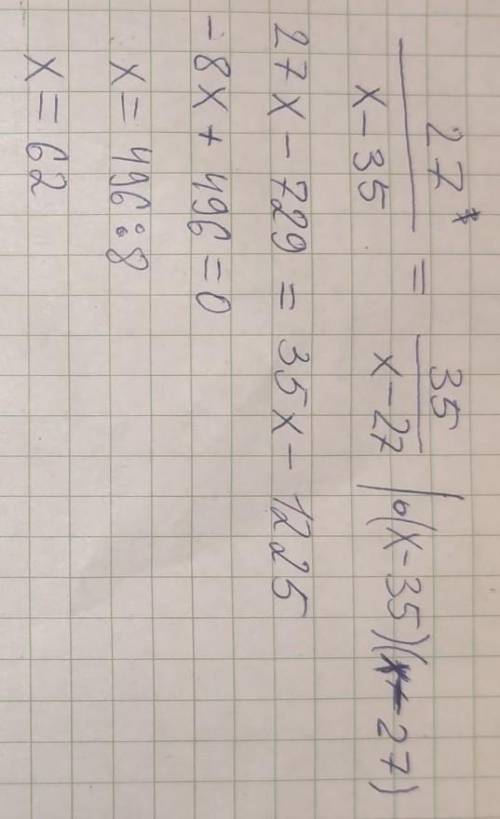 27* / x-35 = 35 / x-27 | ·(x-35)(x-27)
27x - 729 = 35x - 1225
-8x + 496 = 0
x = 496 : 8
x = 62